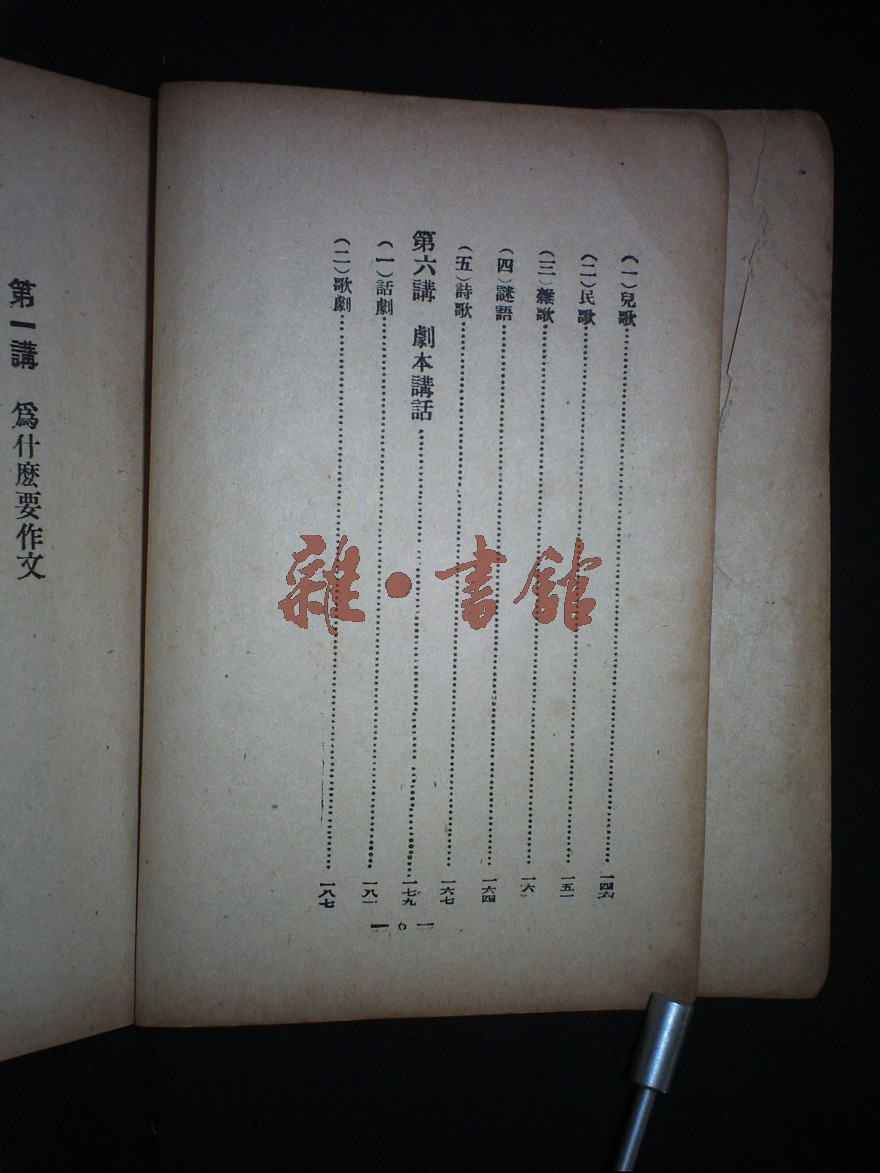 (一)兒歌……一四六
(二)民歌……一五一
(三)雜歌……一六一
(四)謎語……一六四
(五)詩歌……一六七
第六講 劇本講話……一七九
(一)話劇……一八一
(二)歌劇……一八七
— 6 —
第一講 爲什麽要作文
雜·書館